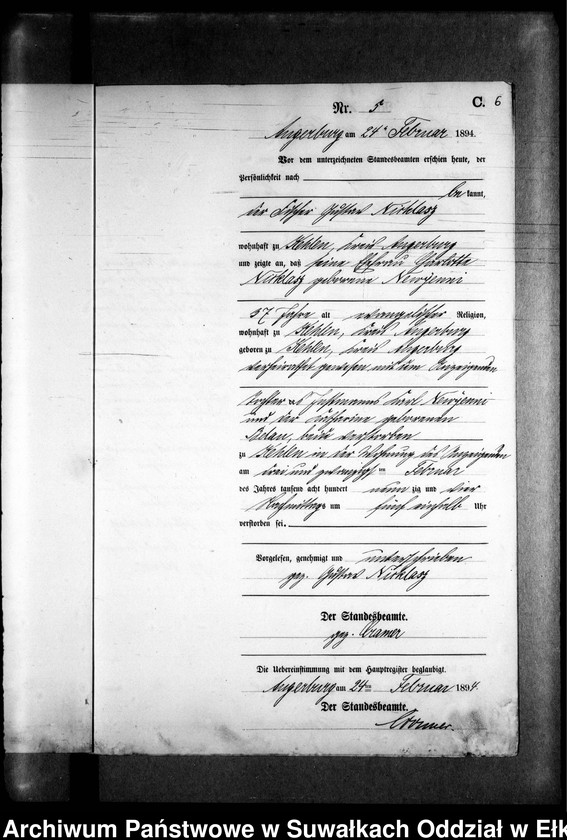 C. 6
Nr. 5
Angerburg am 24ten Februar 1894.
Vor dem unterzeichneten Standesbeamten erschien heute, der
Persönlichkeit nach
be kannt,
der Gustav Nicklasz
wohnhaft zu Kehlen, Kreis Angerburg
und zeigte an, daß seine Ehefrau Charlotte
Nicklasz geborene Newjenni
37 Jahre alt evangelischer Religion,
wohnhaft zu Kehlen, Kreis Angerburg
geboren zu Kehlen, Kreis Angerburg
verheirathet gewesen mit dem Anzeigenden
Tochter des Instmanns Karl Newjenni
und der Catharine geborenen
Belau, beide verstorben
zu Kehlen in der Wohnung des Anzeigenden
am drei und zwanzigsten Februar
des Jahres tausend acht hundert neun zig und vier
Nachmittags um fünf einhalb Uhr
verstorben sei.
Vorgelesen, genehmigt und unterschrieben
gez. Gustav Nicklasz
Der Standesbeamte.
gez. Cramer
Die Uebereinstimmung mit dem Hauptregister beglaubigt.
Angerburg am 24ten Februar 1894.
Der Standesbeamte.
Cramer.
Archiwum Państwowe w Suwałkach Oddział w Ełk